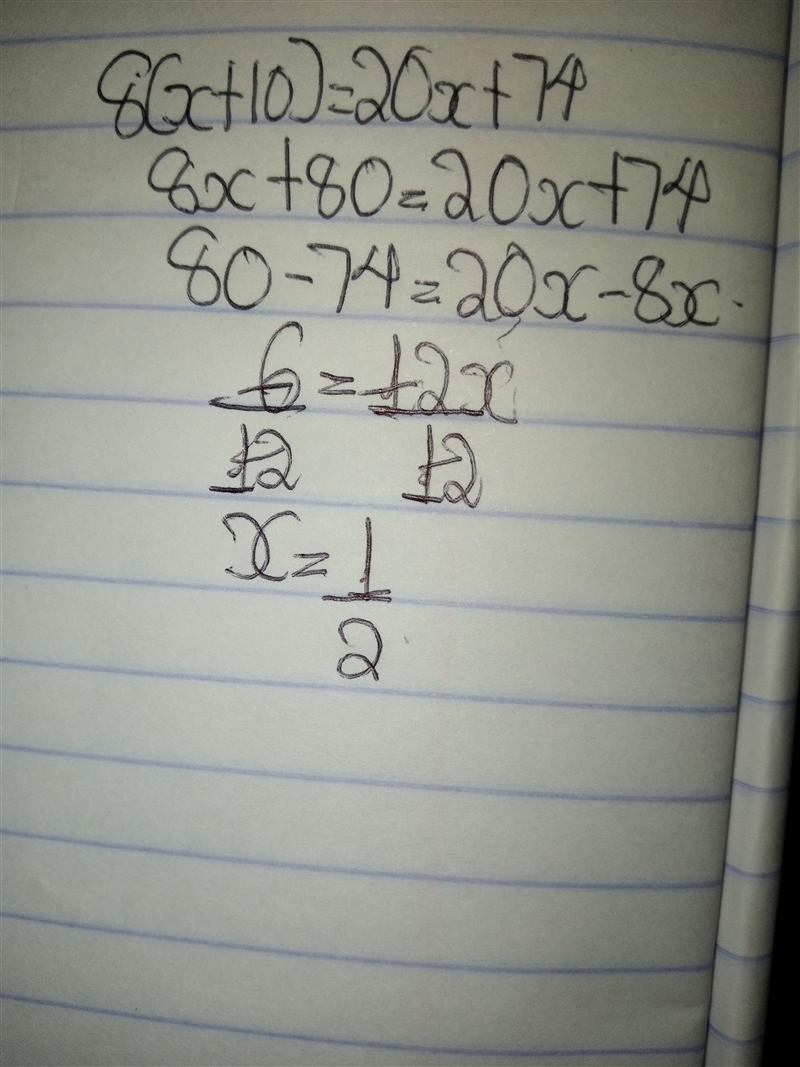 8(x+10)=20x+74
8x+80=20x+74
80-74=20x-8x.
6=12x
12 12
x=1
2